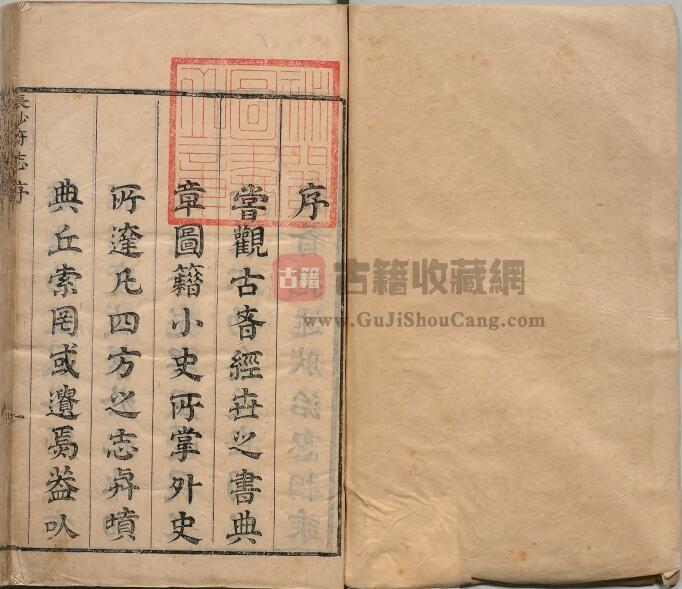 序
嘗觀古經世之書典
章圖籍小史所掌外史
所達凡四方之志與墳
典丘索罔或遺焉蓋以
長沙府志序
古籍
古籍收藏網
www.GuJiShouCang.com